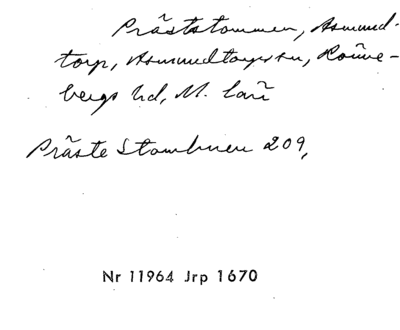 Präststommen, Asmund-
torp, Asmundtorps sn, Rönne-
bergs hd, M. län
Präste Stombnen 209,
Nr 11964 Jrp 1670